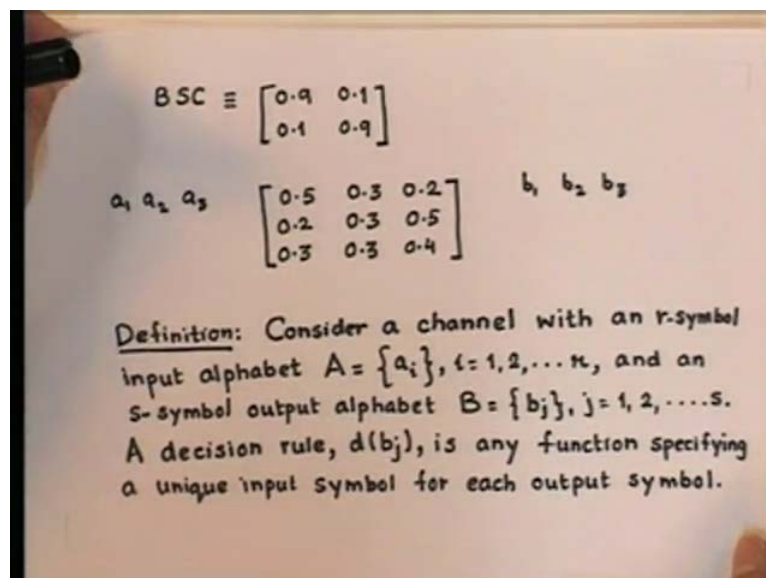 BSC ≡ [0.9 0.1
0.1 0.9]
a₁ a₂ a₃ [0.5 0.3 0.2 b₁ b₂ b₃
0.2 0.3 0.5
0.3 0.3 0.4]
Definition: Consider a channel with an r-symbol
input alphabet A = {aᵢ}, i = 1, 2, ... r, and an
s-symbol output alphabet B = {bⱼ}, j = 1, 2, ....s.
A decision rule, d(bⱼ), is any function specifying
a unique input symbol for each output symbol.